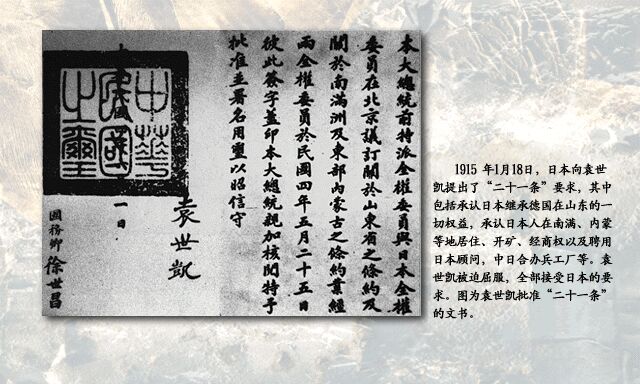 本大總統前特派全權委員與日本全權
委員在北京議訂關於山東省之條約及
關於南滿洲及東部內蒙古之條約業經
兩全權委員於民國四年五月二十五日
彼此簽字蓋印本大總統親加核閱特予
批准並署名用璽以昭信守
袁世凱
中華
民國
之璽
一日
國務卿 徐世昌
1915 年1月18日，日本向袁世
凯提出了“二十一条”要求，其中
包括承认日本继承德国在山东的一
切权益，承认日本人在南满、内蒙
等地居住、开矿、经商权以及聘用
日本顾问，中日合办兵工厂等。袁
世凯被迫屈服，全部接受日本的要
求。图为袁世凯批准“二十一条”
的文书。